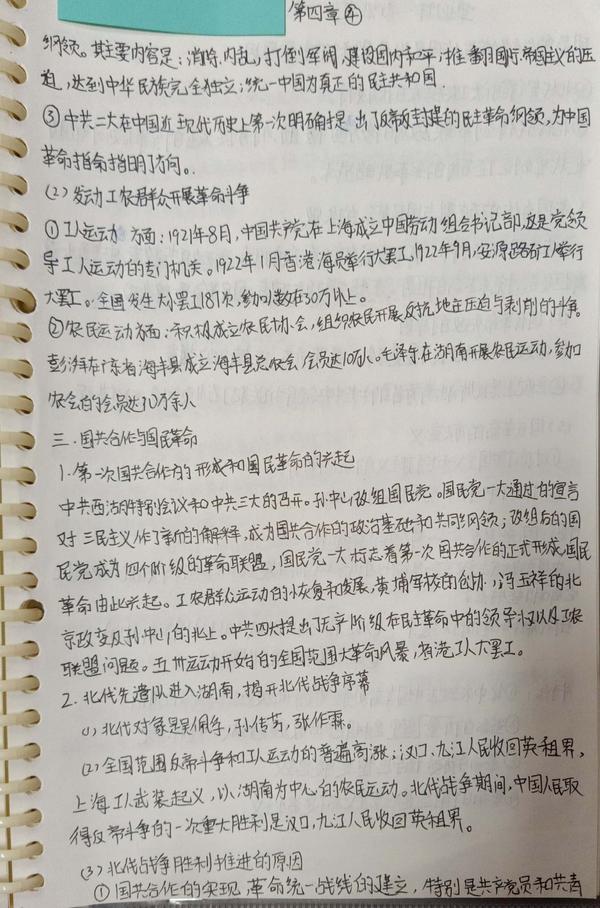 第四章④
纲领。其主要内容是：消除内乱，打倒军阀，建设国内和平；推翻国际帝国主义的压
迫，达到中华民族完全独立；统一中国为真正的民主共和国
③中共二大在中国近现代历史上第一次明确提出了反帝反封建的民主革命纲领，为中国
革命指命指明了方向。
(2)发动工农群众开展革命斗争
①工人运动方面：1921年8月，中国共产党在上海成立中国劳动组合会书记部，这是党领
导工人运动的专门机关。1922年1月香港海员举行大罢工，1922年9月，安源路矿工人举行
大罢工。全国发生大小罢工187次，参加的人数在30万以上。
②农民运动方面：积极成立农民协会，组织农民开展反抗地主压迫与剥削的斗争。
彭湃在广东省海丰县成立海丰县总农会，会员达10万人。毛泽东在湖南开展农民运动，参加
农会的会员达10万余人
三．国共合作与国民革命
1.第一次国共合作的形成和国民革命的兴起
中共西湖特别会议和中共三大的召开。孙中山改组国民党。国民党一大通过的宣言
对三民主义作了新的解释，成为国共合作的政治基础和共同纲领；改组后的国
民党成为四个阶级的革命联盟，国民党一大标志着第一次国共合作的正式形成，国民
革命由此兴起。工农群众运动的恢复和发展，黄埔军校的创办，冯玉祥的北
京政变及孙中山的北上。中共四大提出了无产阶级在民主革命中的领导权以及工农
联盟问题。五卅运动开始的全国范围大革命风暴，省港工人大罢工。
2.北伐先遣队进入湖南，揭开北伐战争序幕
(1)北伐对象是吴佩孚，孙传芳，张作霖。
(2)全国范围反帝斗争和工人运动的普遍高涨；汉口、九江人民收回英租界，
上海工人武装起义，以湖南为中心的农民运动。北伐战争期间，中国人民取
得反帝斗争的一次重大胜利是汉口，九江人民收回英租界。
(3)北伐战争胜利推进的原因
①国共合作的实现，革命统一战线的建立，特别是共产党员和共青